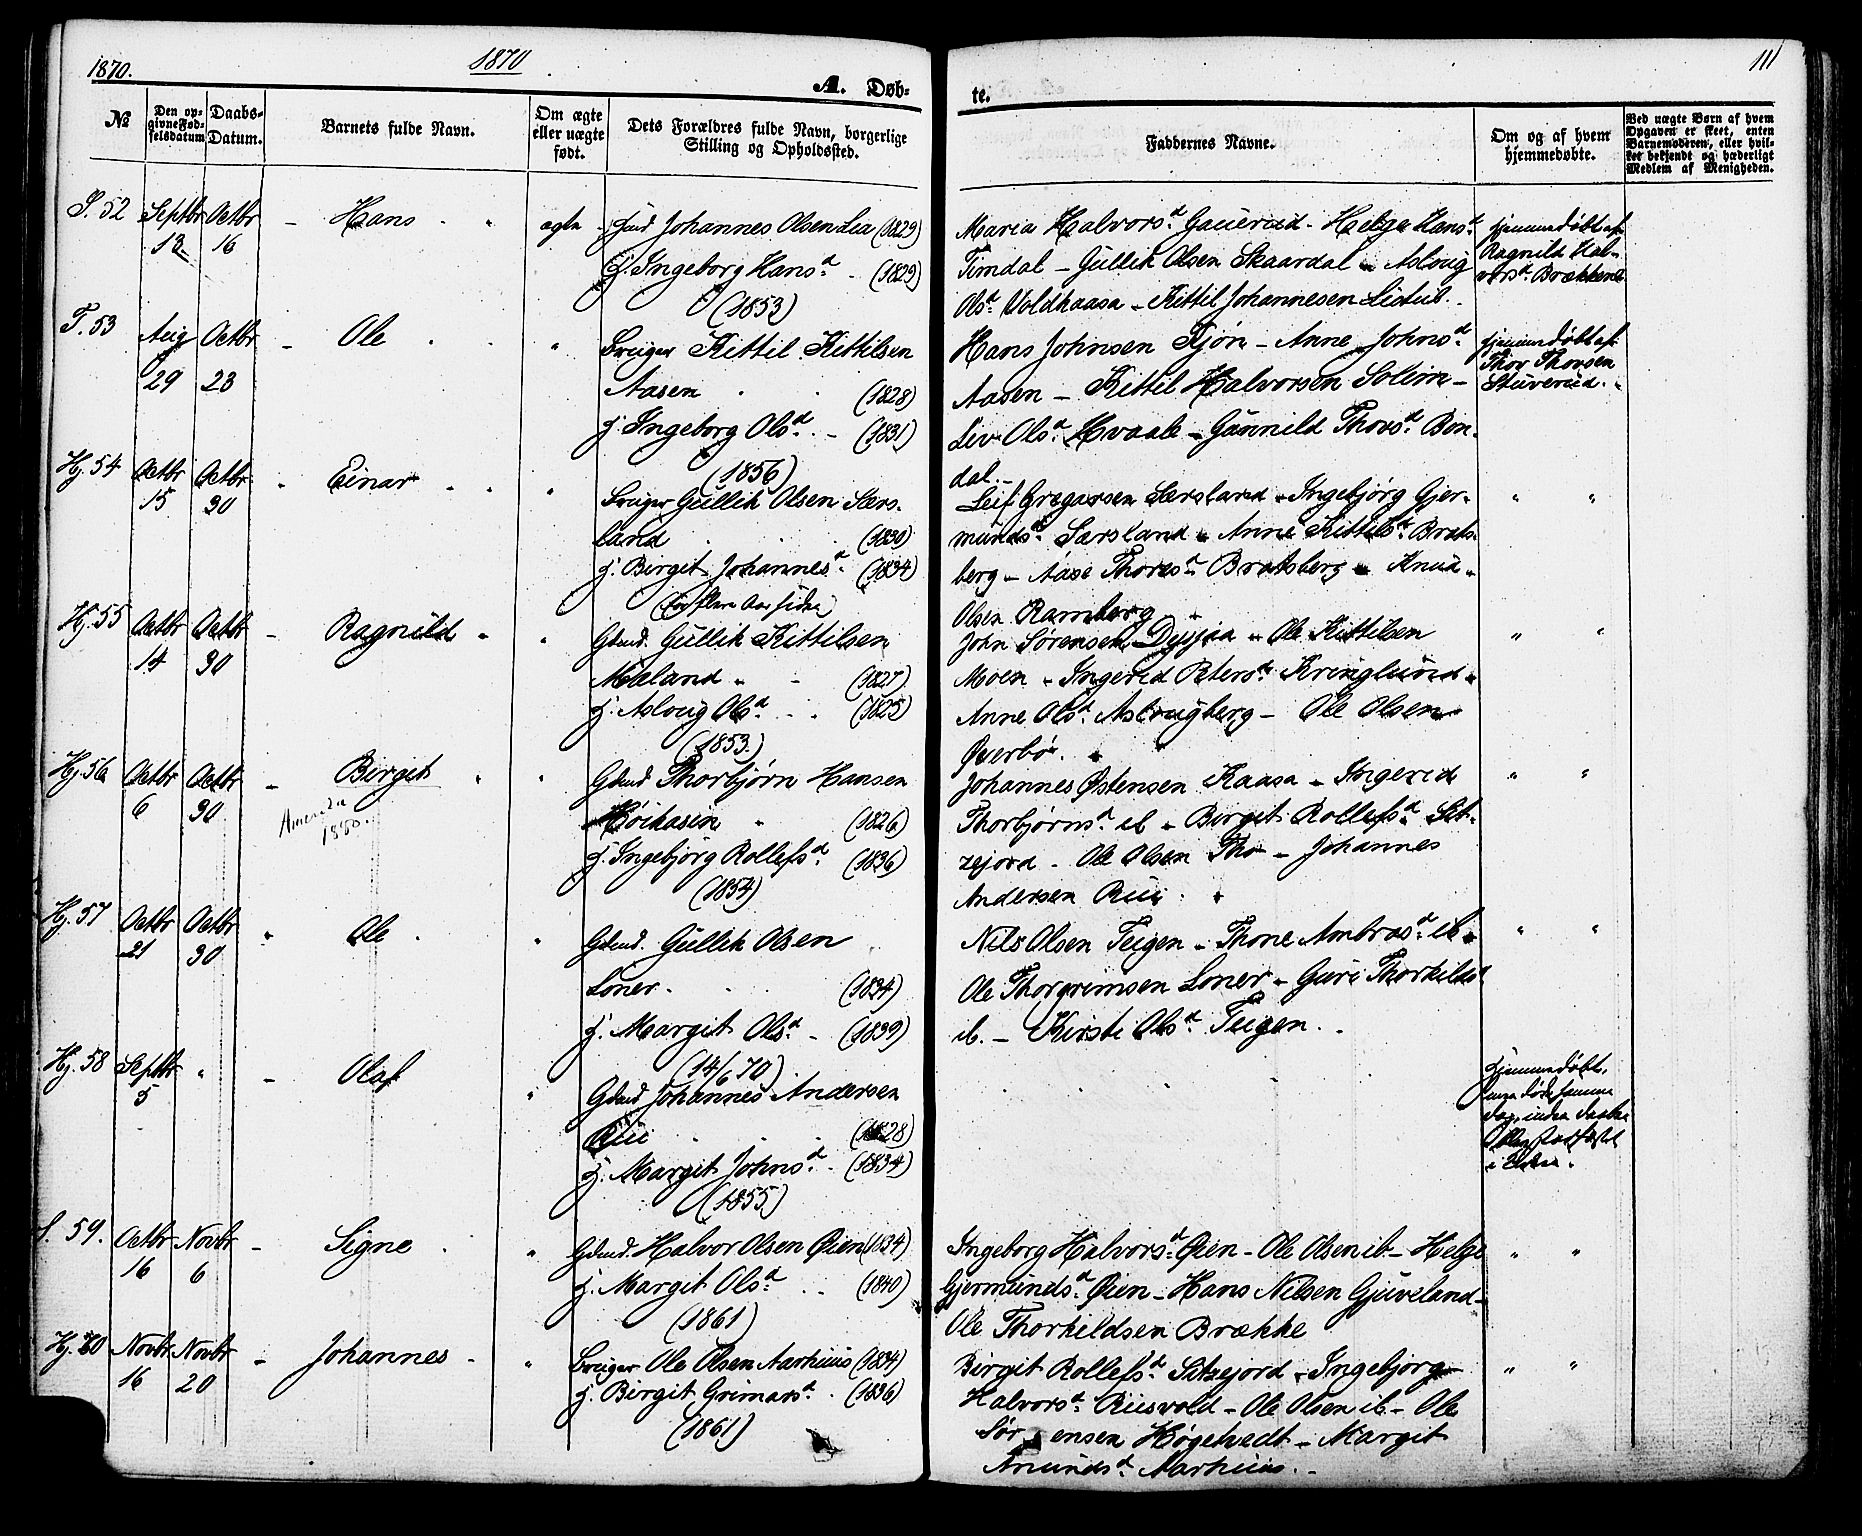 1870.
1870
111
A. Døb-
te.
№
Den op-
givne Fød-
selsdatum
Daabs-
Datum.
Barnets fulde Navn.
Om ægte
eller uægte
født.
Dets Forældres fulde Navn, borgerlige
Stilling og Opholdssted.
Faddernes Navne.
Om og af hvem
hjemmedøbte.
Ved uægte Børn af hvem
Opgaven er skeet, enten
Barnemoderen, eller hvil-
ket bekjendt og hæderligt
Medlem af Menigheden.
S. 52 Septbr 12 Octbr 16 - Hans - " ægte -
Johannes Olsen Lia (1829)
H. Ingeborg Hans.d - (1829)
(1853)
Maria Halvors.d Gauerud - Helge Hans.d
Timdal - Gullik Olsen Skaardal - Asloug
Ols.d Voldkaasa - Kittil Johannesen Lidtub.
hjemmedøbt af
Ragnild Hal-
vors.d Brækkene
T. 53 Aug 29 Octbr 23 - Ole "
Bruger Kittil Kittilsen
Aasen (1828)
H. Ingeborg Ols.d - (1831)
(1856)
Hans Johnsen Kjøn - Anne Johns.d
Aasen - Kittil Halvorsen Solem -
Liv Ols.d Hvaale - Gunnild Thovs.d Bon-
dal. -
hjemmedøbt af
Thov Thovsen
Stuverud.
Hj. 54 Octbr 15 Octbr 30 - Einar "
Bruger Gullik Olsen Særs-
land (1830)
H. Birgit Johannes.d (1834)
(for flere Aar siden)
Leif Gregarsen Særsland - Ingebjørg Gjer-
munds.d Særsland - Anne Kittils.d Brats-
berg - Aase Thores.d Bratsberg - Knud
Olsen Ramberg " "
Hj. 55 Octbr 14 Octbr 30 - Ragnild - "
Gdmd. Gullik Kittilsen
Mæland - (1827)
H. Asloug Ols.d - (1825)
(1853.)
John Sørensen - Ole Kittilsen
Moen - Ingerid Peters.d Kringlund -
Anne Ols.d Aslougberg - Ole Olsen
Øverbø. " "
Hj. 56 Octbr 6 Octbr 30 - Birgit "
1880.
Gdmd Thorbjørn Hansen
Høikasin (1826)
H. Ingebjørg Rollefs.d (1836)
(1854)
Johannes Østensen Kaasa - Ingerid
Thorbjørns.d ib - Birgit Rollefs.d Sit-
zejord - Ole Olsen Tho - Johannes
Andersen Rui. " "
Hj. 57 Octbr 21 Octbr 30 " Ole "
Gdmd. Gullik Olsen
Loner. (1834)
H. Margit Ols.d - (1839)
(14/6 70)
Nils Olsen Teigen - Thone Ambros.d ib -
Ole Thorgrimsen Loner - Guri Thorkilds.d
ib. - Kirsti Ols.d Teigen. " "
Hj. 58 Septbr 5 " - Olaf "
Gdmd Johannes Andersen
Rui (1828)
H. Margit Johns.d - (1834)
(1855)
Hjemmedøbt,
døde samme
S. 59. Octbr 16 Novbr 6 - Signe "
Gdmd. Halvor Olsen Øien (1834)
H. Margit Ols.d - (1840)
(1861)
Ingeborg Halvors.d Øien - Ole Olsen ib - Helge
Gjermunds.d Øien - Hans Nilsen Gjuveland -
Ole Thorkildsen Brække " "
Hj. 60 Novbr 16 Novbr 20 - Johannes - "
Bruger Ole Olsen Aarhuus (1834)
H. Birgit Grimars.d - (1836)
(1861)
Birgit Rollefs.d Sitzejord - Ingebjørg
Halvors.d Ruisvold - Ole Olsen ib - Ole
Sørensen Høgetvedt - Margit
Amunds.d Aarhuus. - " "